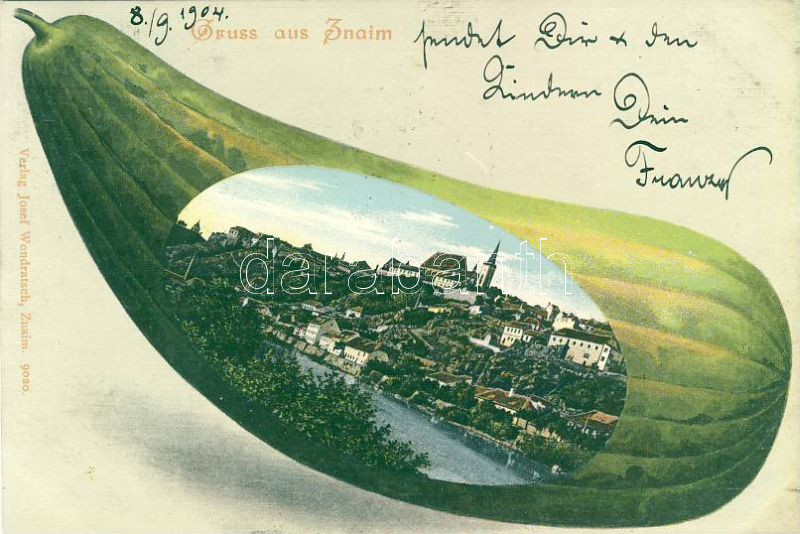 8./9. 1904.
Gruss aus Znaim
sendet Dir & den
Kindern Dein
Franz
Verlag Josef Wondratsch, Znaim. 9020.
darabanth